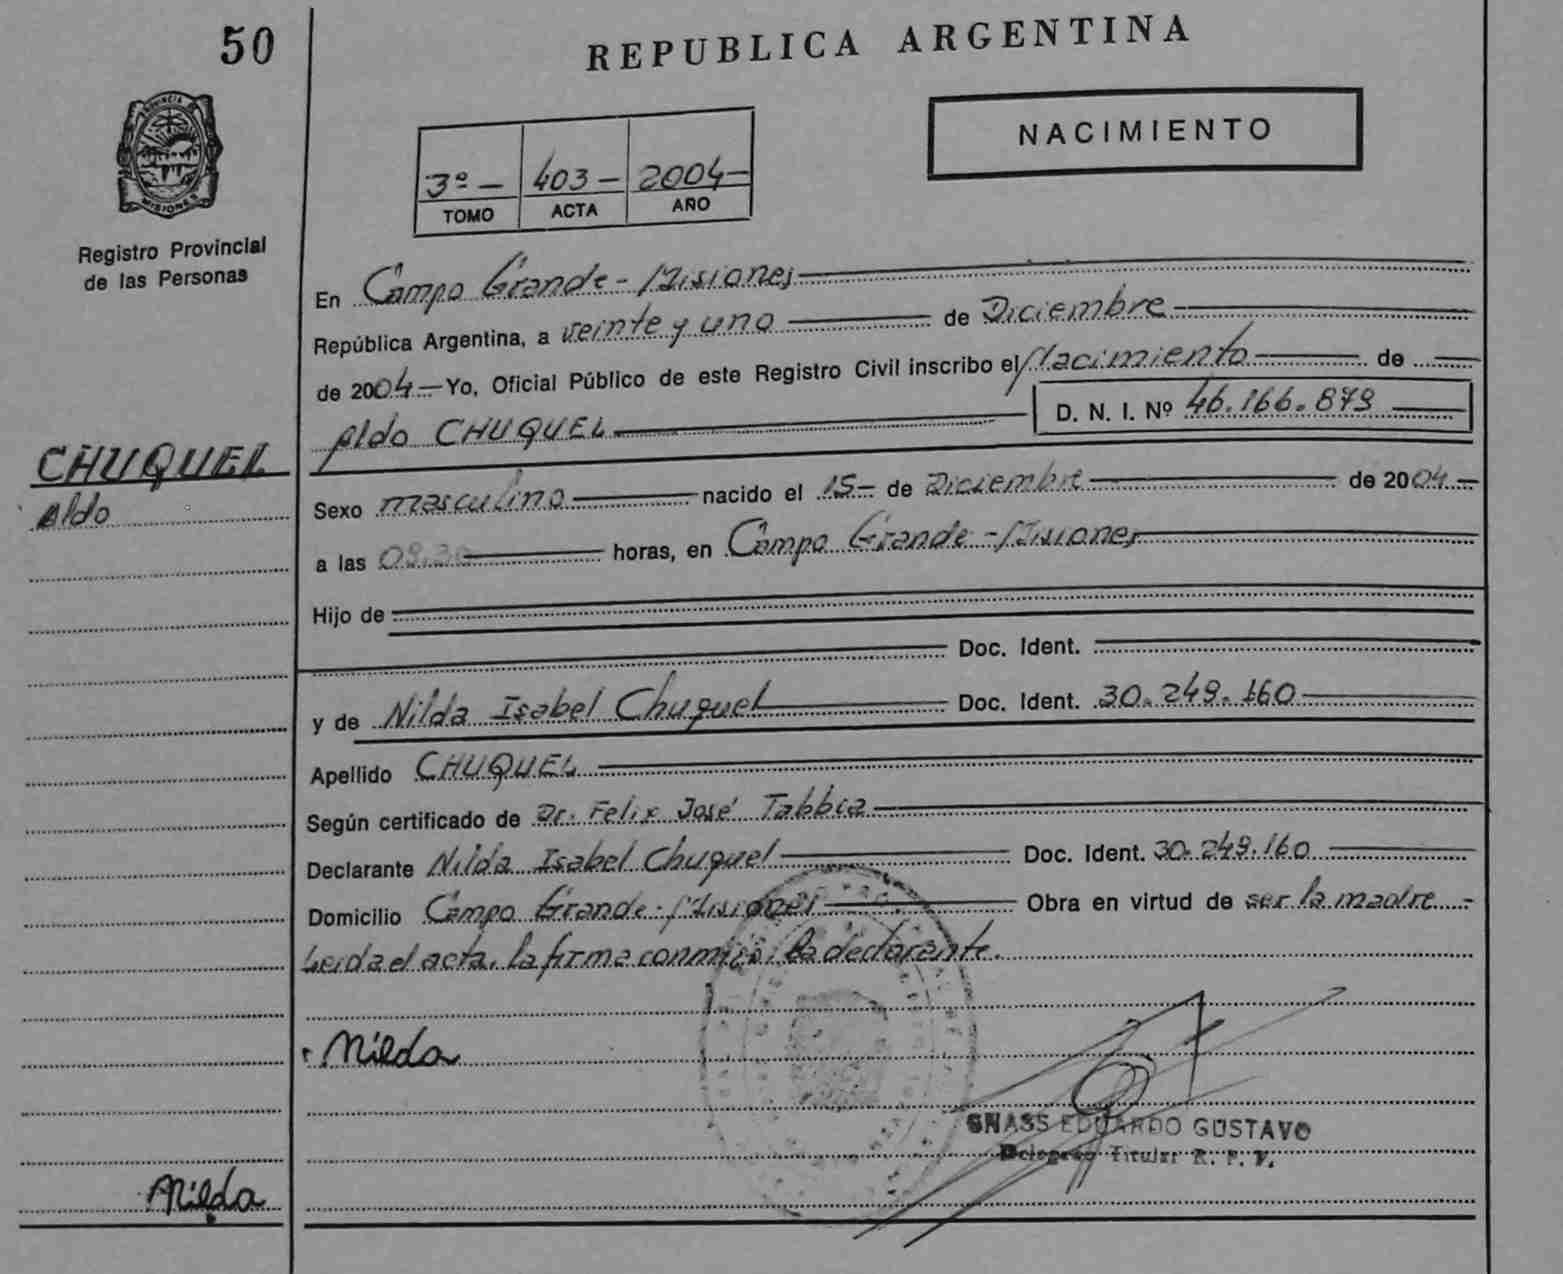 50
REPUBLICA ARGENTINA
PROVINCIA DE
MISIONES
Registro Provincial
de las Personas
NACIMIENTO
3º - 403 - 2004 -
TOMO ACTA AÑO
En Campo Grande - Misiones
República Argentina, a veinte y uno de Diciembre
de 2004 - Yo, Oficial Público de este Registro Civil inscribo el Nacimiento de
Aldo CHUQUEL D. N. I. Nº 46.166.879
CHUQUEL
Aldo
Sexo masculino nacido el 15 - de Diciembre de 2004 -
a las 09.30 horas, en Campo Grande - Misiones
Hijo de
Doc. Ident.
y de Nilda Isabel Chuquel Doc. Ident. 30.249.160
Apellido CHUQUEL
Según certificado de Dr. Felix José Tabbia
Declarante Nilda Isabel Chuquel Doc. Ident. 30.249.160
Domicilio Campo Grande - Misiones Obra en virtud de ser la madre -
Leida el acta, la firma conmigo, la declarante.
Nilda
GNASS EDUARDO GUSTAVO
Delegado Titular R. P. P.
Nilda